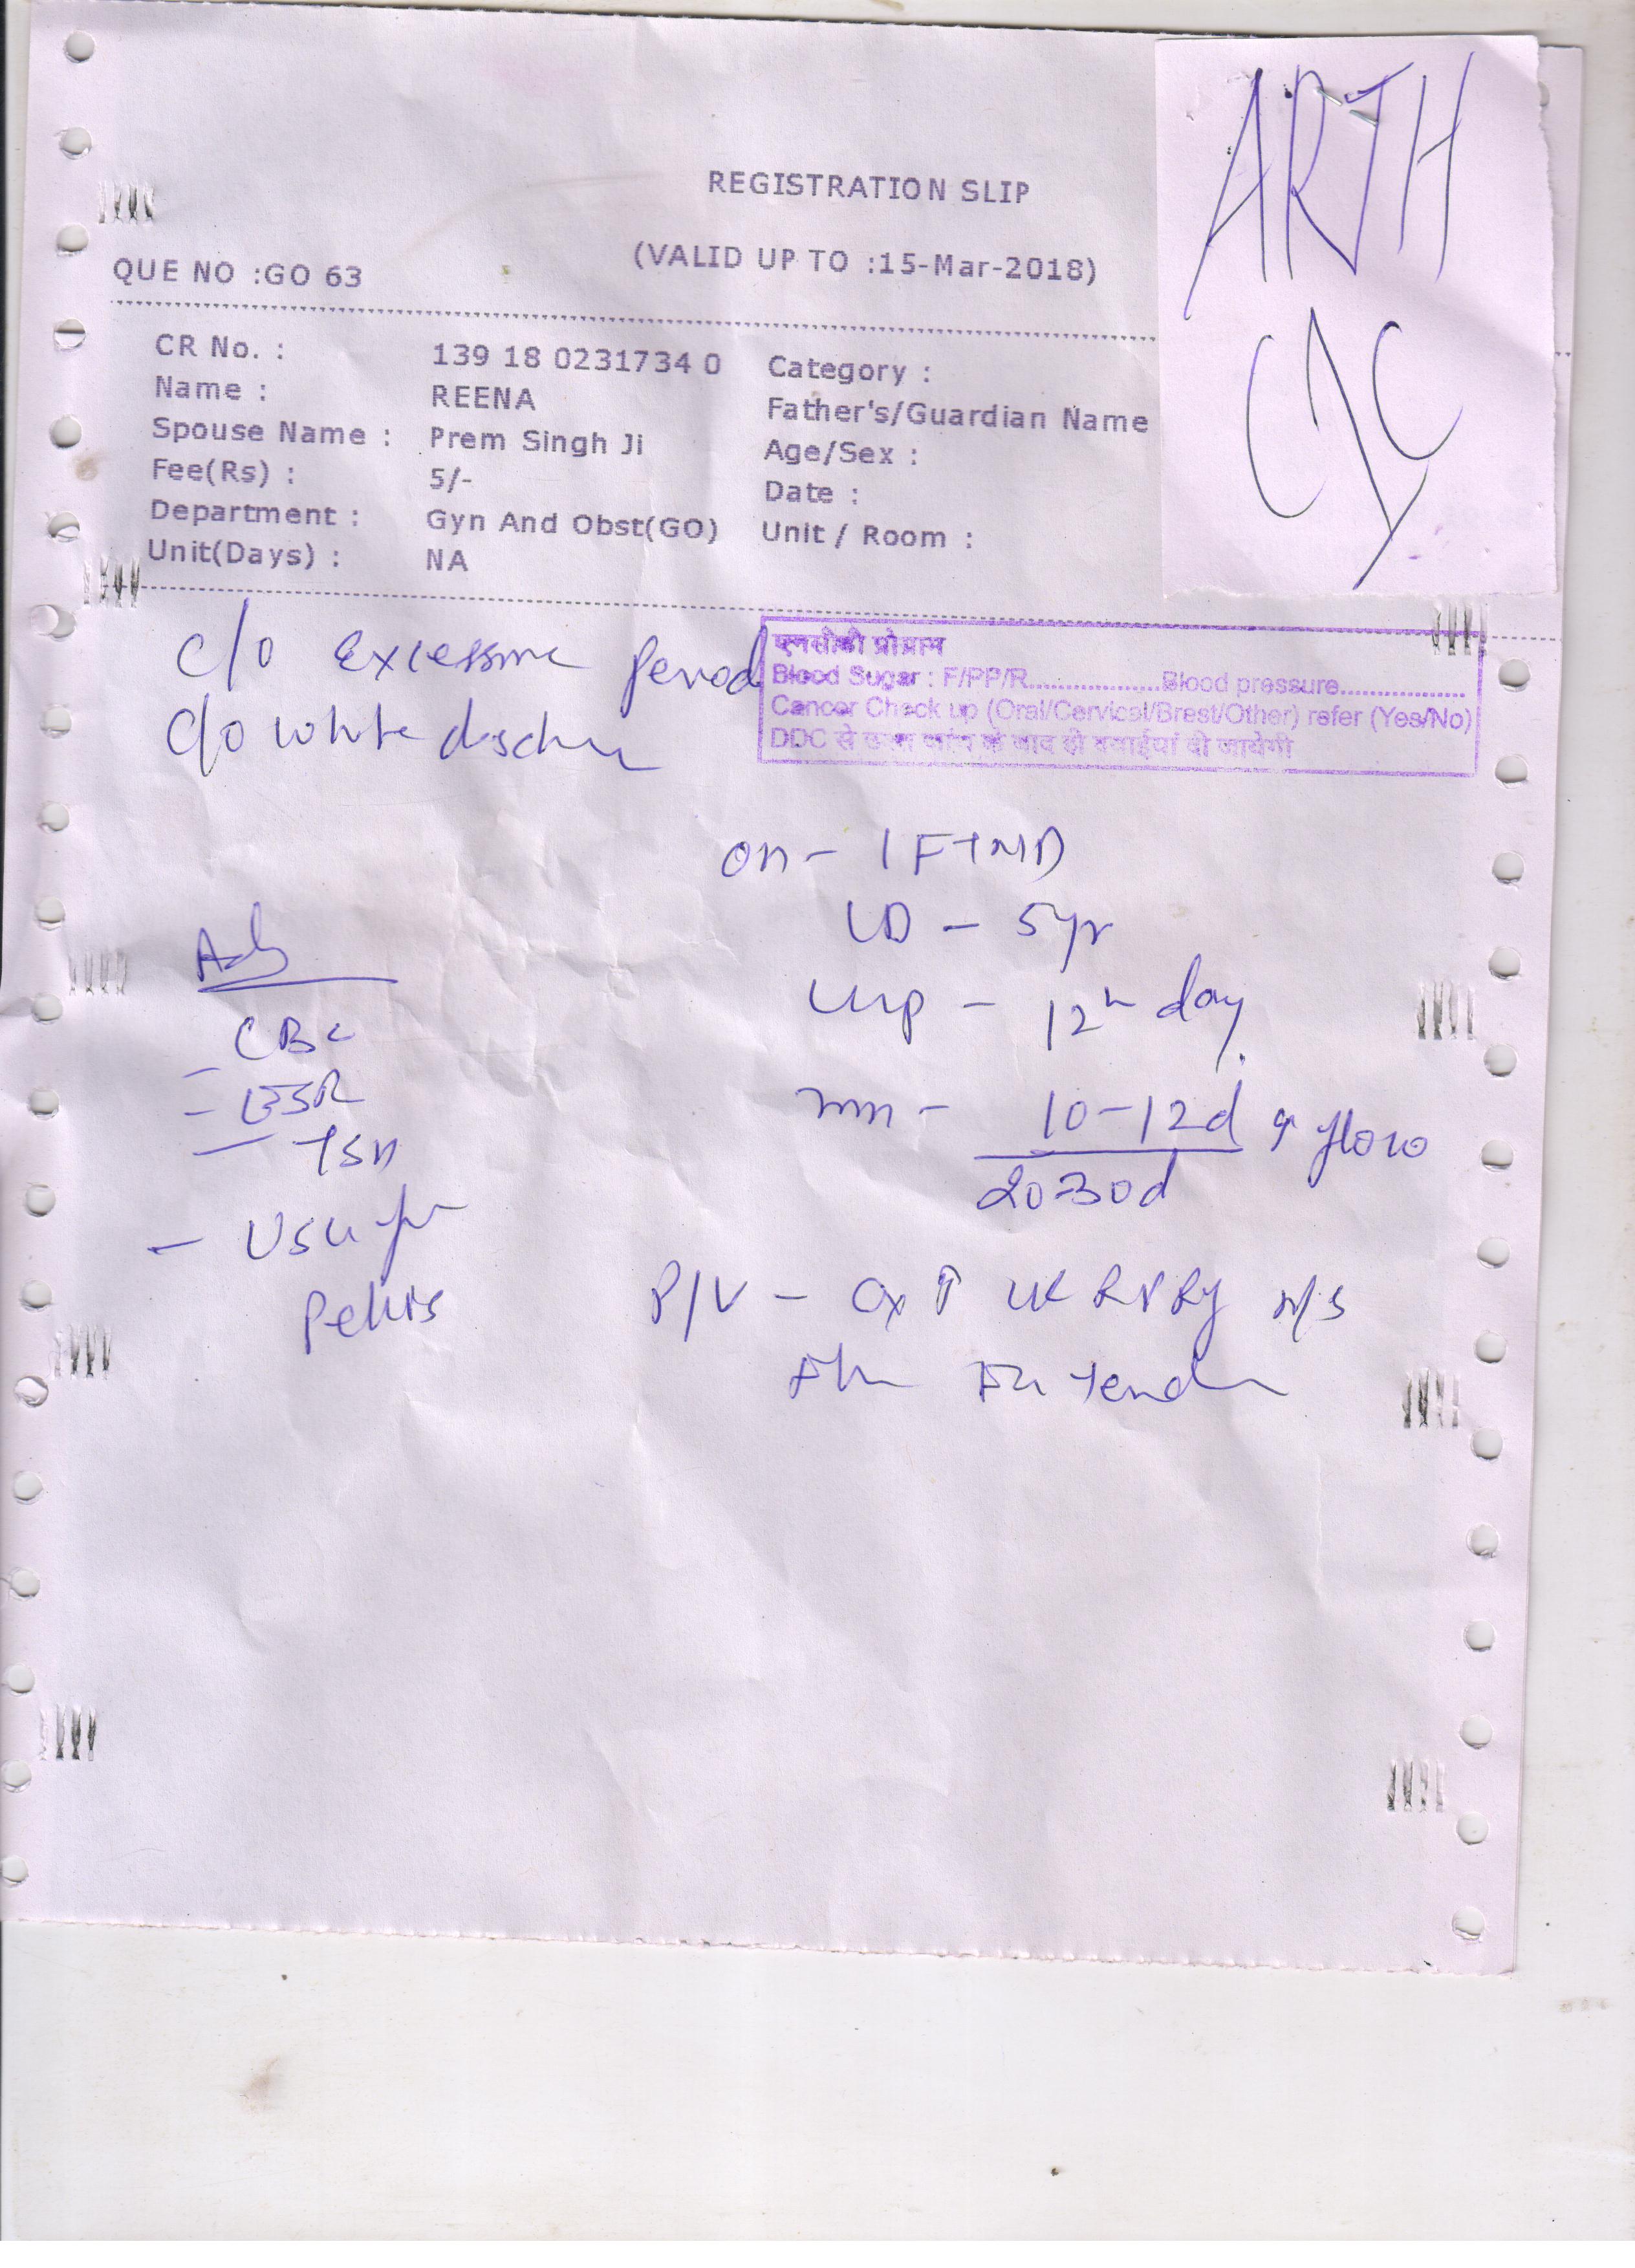 ARTH
REGISTRATION SLIP
(VALID UP TO :15-Mar-2018)
QUE NO :GO 63
CR No. : 139 18 0231734 0 Category :
Name : REENA Father's/Guardian Name
Spouse Name : Prem Singh Ji Age/Sex :
Fee(Rs) : 5/- Date :
Department : Gyn And Obst(GO) Unit / Room :
Unit(Days) : NA
एनसीडी प्रोग्राम
Blood Sugar : F/PP/R..................Blood pressure.................
Cancer Check up (Oral/Cervical/Brest/Other) refer (Yes/No)
DDC से के बाद ही दवाईयां दी जायेगी
C/o Excessive Period
C/o white
1 FTND
LD - 5yr
LMP - 12th day
10-12d flow
20-30d
Adv
CBC
- ESR
- TSH
- USG for
Pelvis
P/V - Cx